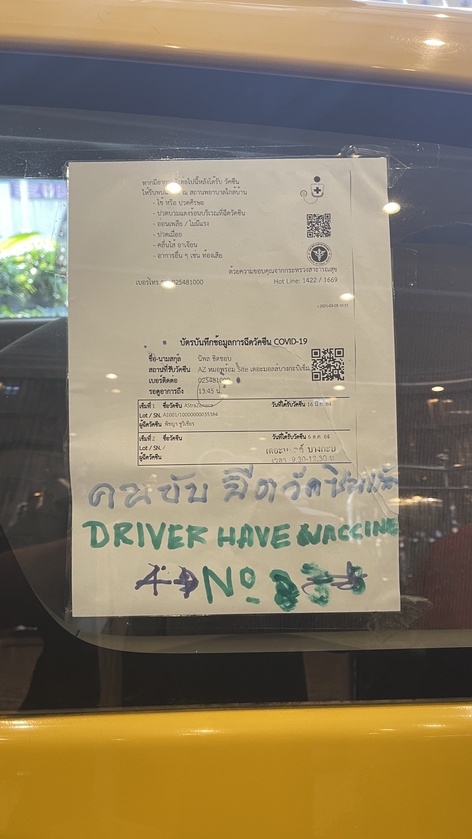 หากมีอาการต่อไปนี้หลังได้รับ วัคซีน
ให้รีบพบแพทย์ ณ สถานพยาบาลใกล้บ้าน
- ไข้ หรือ ปวดศีรษะ
- ปวดบวมแดงร้อนบริเวณที่ฉีดวัคซีน
- อ่อนเพลีย / ไม่มีแรง
- ปวดเมื่อย
- คลื่นไส้ อาเจียน
- อาการอื่น ๆ เช่น ท้องเสีย
ด้วยความขอบคุณจากกระทรวงสาธารณสุข
เบอร์โทร 025481000 Hot Line: 1422 / 1669
บัตรบันทึกข้อมูลการฉีดวัคซีน COVID-19
ชื่อ-นามสกุล นิพล ชิดชอบ
สถานที่รับวัคซีน AZ หมอพร้อม Site เดอะมอลล์บางกะปิเข็ม
เบอร์ติดต่อ
รอดูอาการถึง 13:45 น.
เข็มที่ 1 ชื่อวัคซีน วันที่ได้รับวัคซีน 16
Lot / SN.
ผู้ฉีดวัคซีน
เข็มที่ 2 ชื่อวัคซีน วันที่ได้รับวัคซีน 6 ต.ค. 64
Lot / SN. /
ผู้ฉีดวัคซีน เดอะมอลล์ บางกะปิ
เวลา 9.30-12.30 น.
คนขับ ฉีดวัคซีนแล้ว
DRIVER HAVE VACCINE
Nº